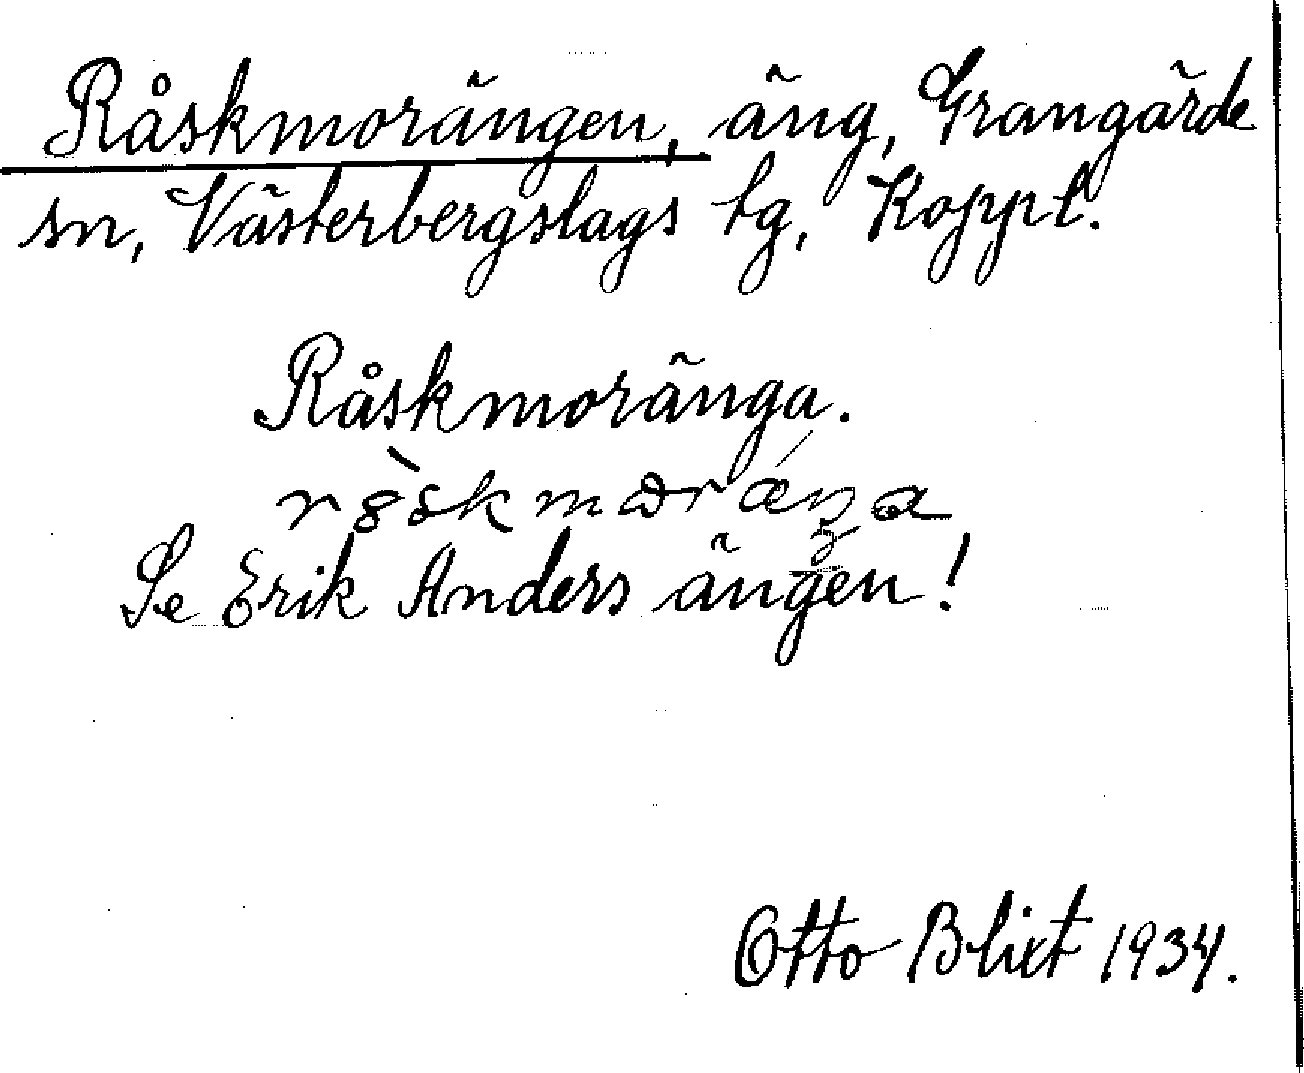 Råskmorängen, äng, Grangärde
sn, Västerbergslags tg, Koppl.
Råskmoränga.
Se Erik Anders ängen!
Otto Blixt 1934.